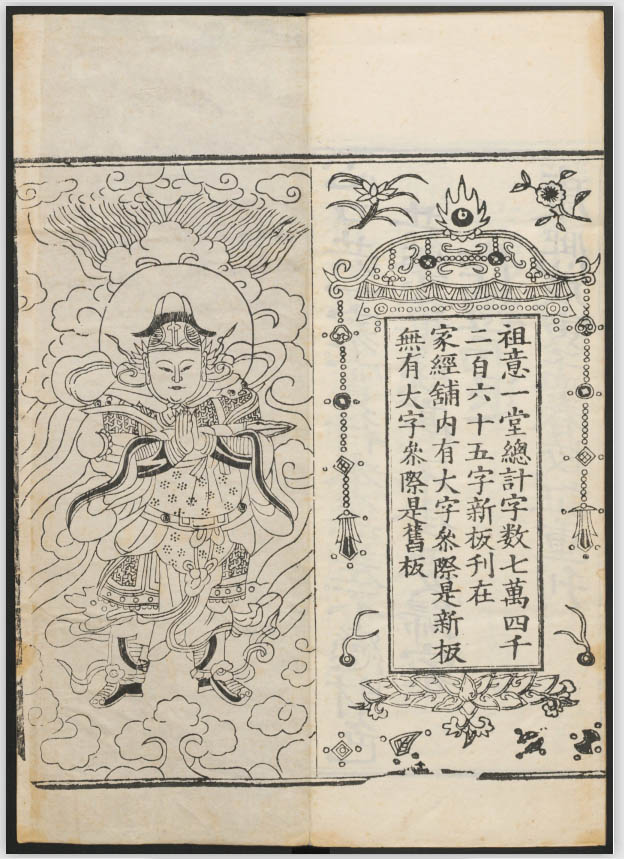 祖意一堂總計字数七萬四千
二百六十五字新板刋在
家經舖内有大字叅際是新板
無有大字叅際是舊板